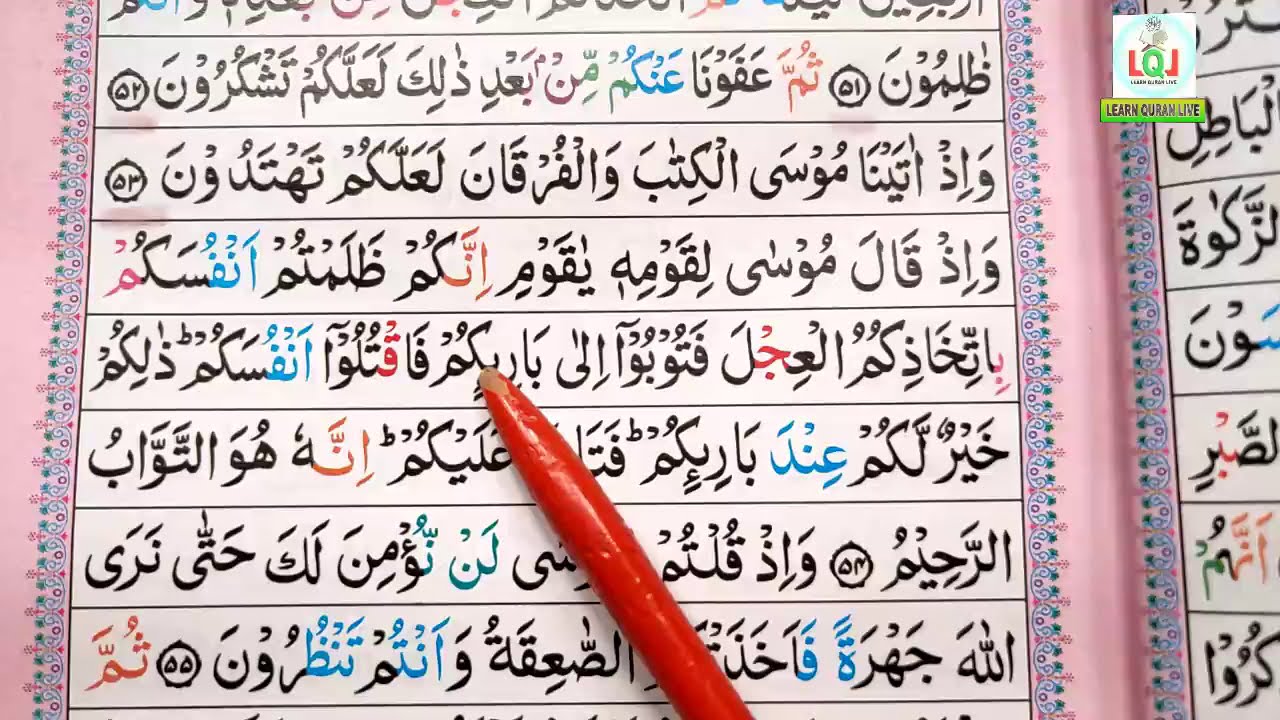 ظٰلِمُوۡنَ ﴿۵۱﴾ ثُمَّ عَفَوۡنَا عَنۡكُمۡ مِّنۡۢ بَعۡدِ ذٰلِكَ لَعَلَّكُمۡ تَشۡكُرُوۡنَ ﴿۵۲﴾
وَاِذۡ اٰتَيۡنَا مُوۡسَى الۡكِتٰبَ وَالۡفُرۡقَانَ لَعَلَّكُمۡ تَهۡتَدُوۡنَ ﴿۵۳﴾
وَاِذۡ قَالَ مُوۡسٰى لِقَوۡمِهٖ يٰقَوۡمِ اِنَّكُمۡ ظَلَمۡتُمۡ اَنۡفُسَكُمۡ
بِاتِّخَاذِكُمُ الۡعِجۡلَ فَتُوۡبُوۡٓا اِلٰى بَارِىِٕكُمۡ فَاقۡتُلُوۡٓا اَنۡفُسَكُمۡؕ ذٰلِكُمۡ
خَيۡرٌ لَّكُمۡ عِنۡدَ بَارِىِٕكُمۡؕ عَلَيۡكُمۡؕ اِنَّهٗ هُوَ التَّوَّابُ
الرَّحِيۡمُ ﴿۵۴﴾ وَاِذۡ قُلۡتُمۡ لَنۡ نُّؤۡمِنَ لَكَ حَتّٰى نَرَى
اللّٰهَ جَهۡرَةً الصّٰعِقَةُ وَاَنۡتُمۡ تَنۡظُرُوۡنَ ﴿۵۵﴾ ثُمَّ
الۡبَاطِلِ
LQL
LEARN QURAN LIVE
LEARN QURAN LIVE